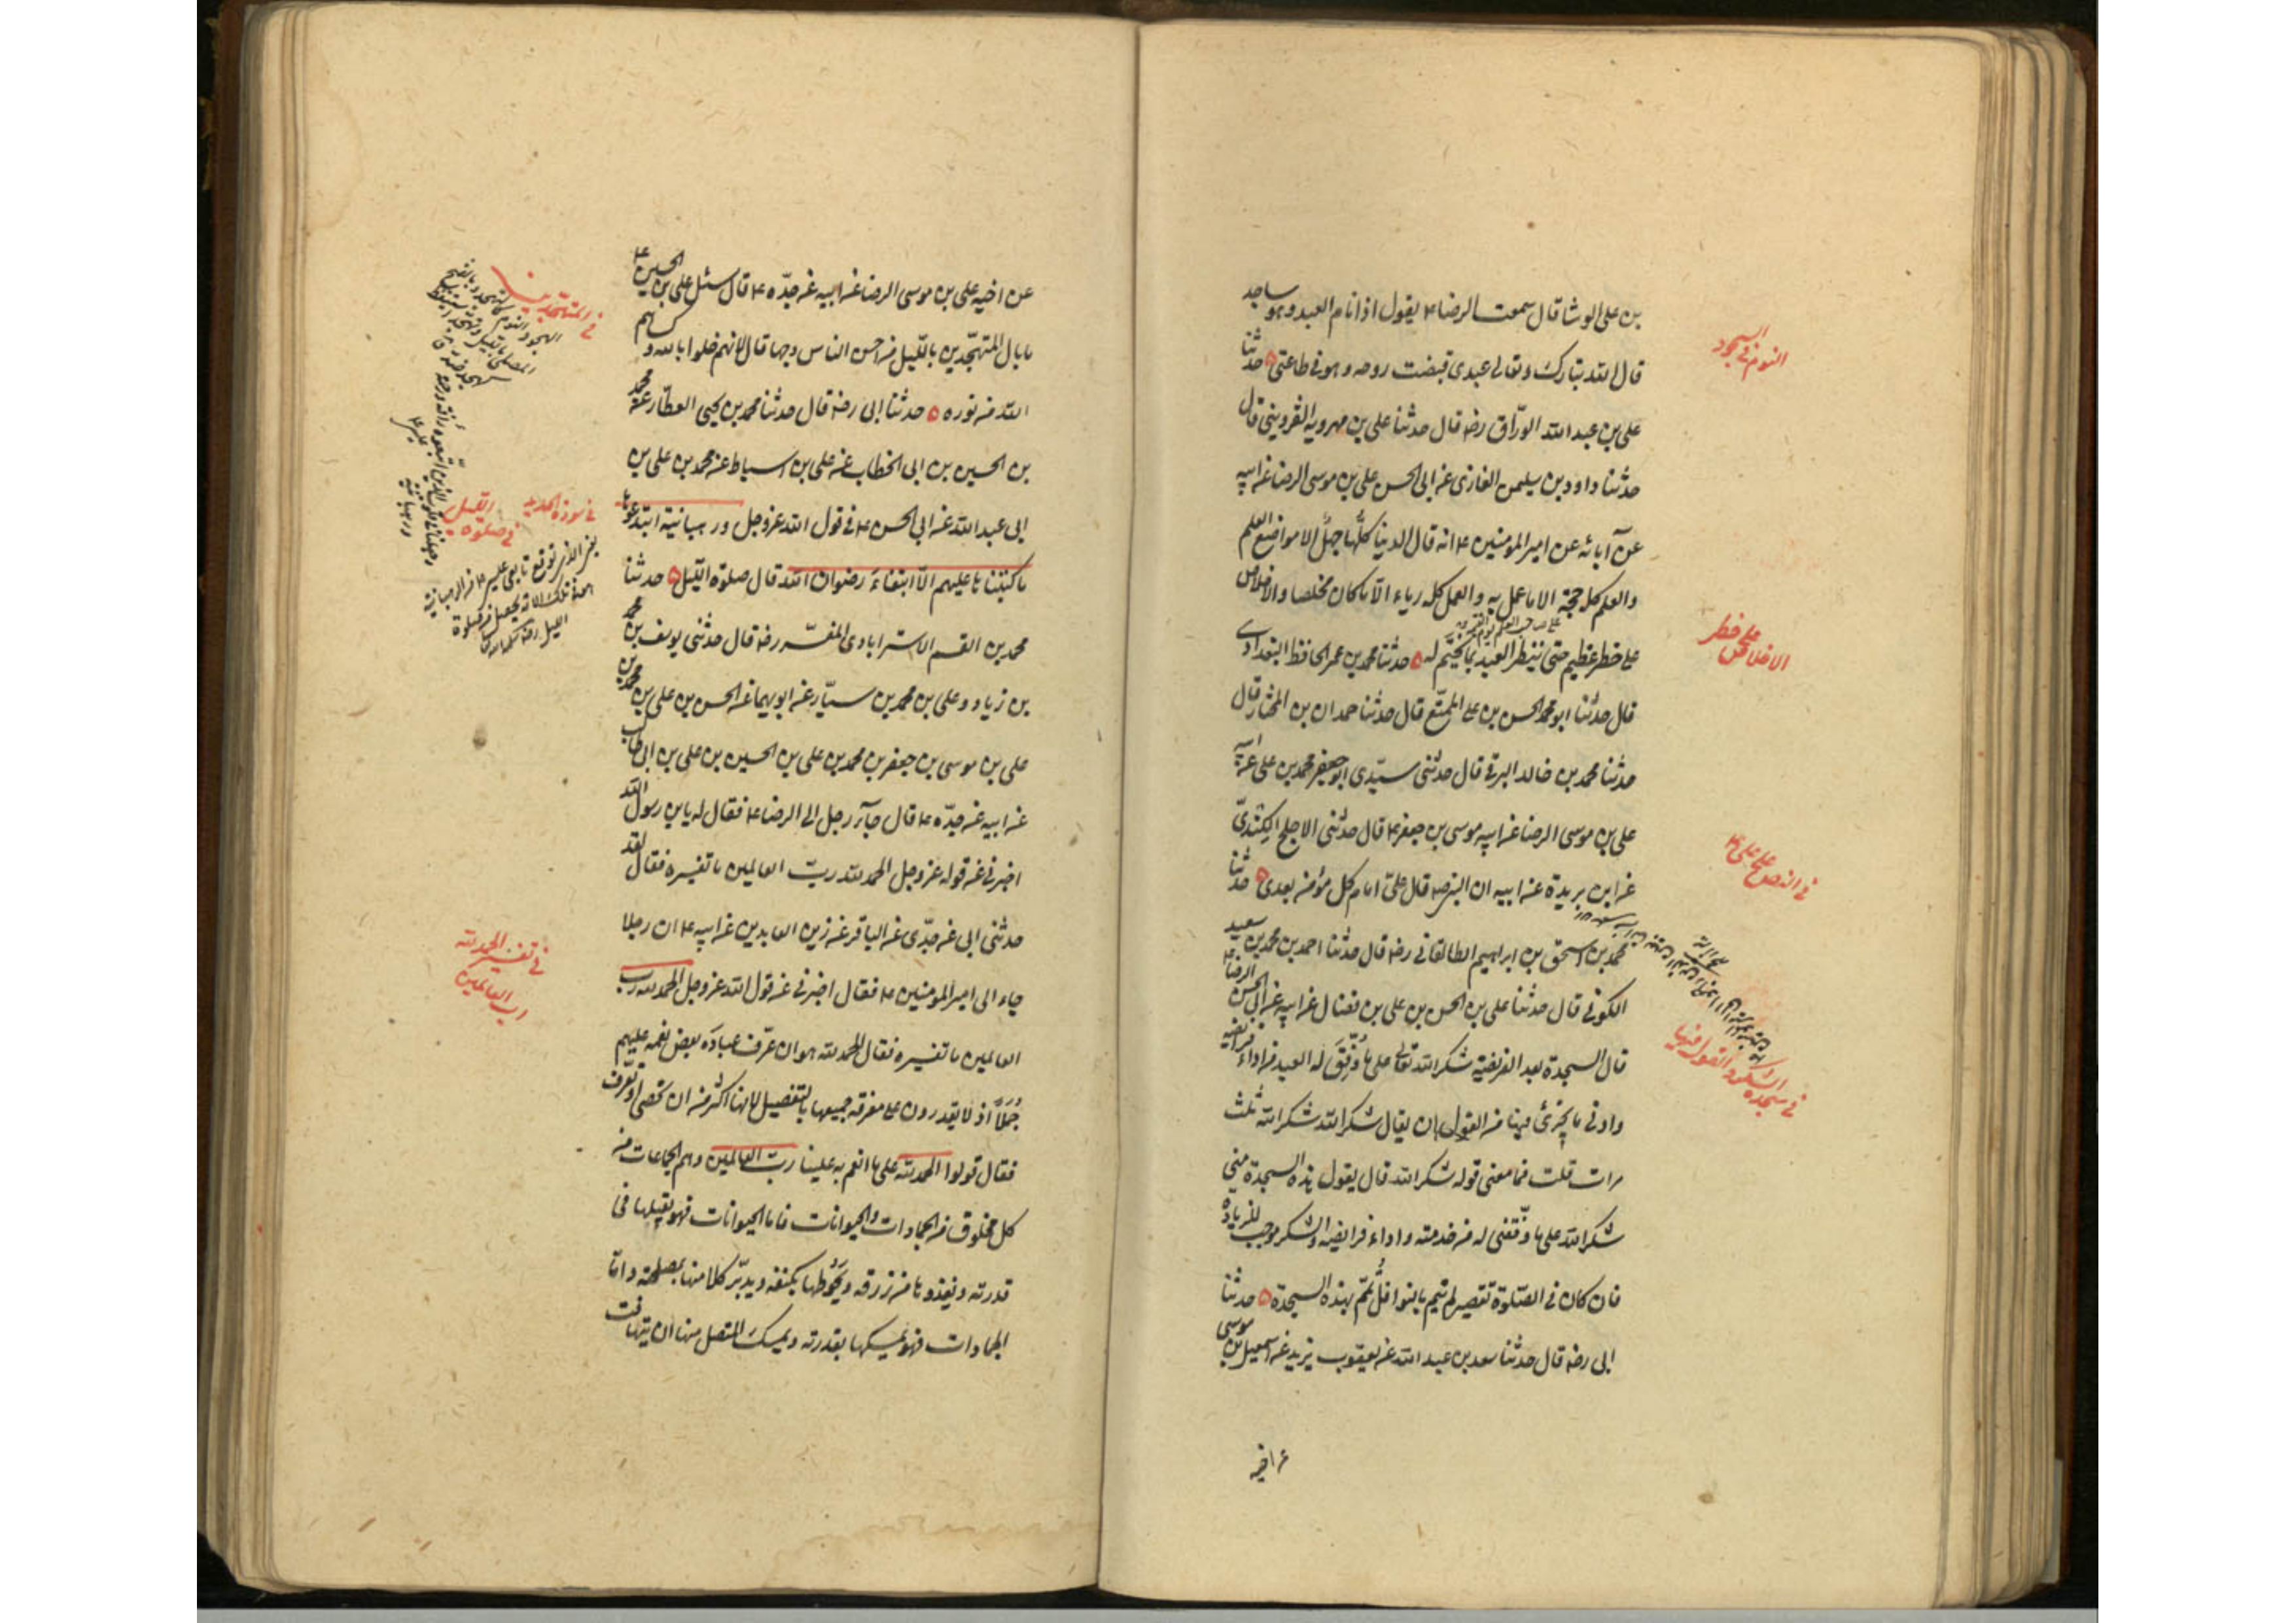 بن على الوشا قال سمعت الرضا ع يقول اذا نام العبد وهو ساجد
قال الله تبارك وتعالى عبدى قبضت روحه وهو فى طاعتى ه حدثنا
على بن عبد الله الورّاق رضه قال حدثنا على بن مهرويه القزوينى قال
حدثنا داود بن سليمن الغازى عن ابى الحسن على بن موسى الرضا عن ابيه
عن آبائه عن امير المومنين ع انه قال الدنيا كلّها جهل الا مواضع العلم
والعلم كله حجة الا ما عمل به والعمل كله رياء الّا ما كان مخلصا والاخلاص
على خطر عظيم حتى ينظر العبد بما يختم له ه حدثنا محمد بن عمر الحافظ البغدادى
قال حدثنا ابو محمد الحسن بن على الممتّع قال حدثنا حمدان بن المختار قال
حدثنا محمد بن خالد البرقى قال حدثنى سيّدى ابو جعفر محمد بن على عن ابيه
على بن موسى الرضا عن ابيه موسى بن جعفر ع قال حدثنى الاجلح الكندىّ
عن ابن بريدة عن ابيه ان النبى ص قال علىّ امام كل مؤمن بعدى ه حدثنا
محمد بن اسحق بن ابراهيم الطالقانى رضه قال حدثنا احمد بن محمد بن سعيد
الكوفى قال حدثنا على بن الحسن بن على بن فضال عن ابيه عن ابى الحسن الرضا ع
قال السجدة بعد الفريضة شكرا لله تعالى على ما وُفِّقَ له العبد من اداء فرائضه
وادنى ما يجزئ فيها من القول ان يقال شكرا لله شكرا لله ثلث
مرات قلت فما معنى قوله شكرا لله قال يقول هذه السجدة منى
شكرا لله على ما وفّقنى له من خدمته واداء فرايضه والشكر موجب للزيادة
فان كان فى الصّلوة تقصير لم يتم بالنوافل تُمّم بهذه السجدة ه حدثنا
ابى رضه قال حدثنا سعد بن عبد الله عن يعقوب يزيد عن اسمعيل بن موسى
عن اخيه
النوم فى السجود
الاخلاص على خطر
فى انه نص على على ع
فى سجدة الشكر والقول فيها
عن اخيه على بن موسى الرضا عن ابيه عن جدّه ع قال سئل على بن الحسين ع
ما بال المتهجّدين بالليل من احسن الناس وجها قال لانهم خلوا بالله وكساهم
الله من نوره ه حدثنا ابى رضه قال حدثنا محمد بن يحيى العطّار عن محمد
بن الحسين بن ابى الخطاب عن على بن اسباط عن محمد بن على بن
ابى عبد الله عن ابى الحسن ع فى قول الله عز وجل ورهبانية ابتدعوها
ما كتبناها عليهم الّا ابتغاءَ رضوان الله قال صلوة الليل ه حدثنا
محمد بن القسم الاسترابادى المفسّر رضه قال حدثنى يوسف بن محمد
بن زياد وعلى بن محمد بن سيّار عن ابويهما عن الحسن بن على بن محمد بن
على بن موسى بن جعفر بن محمد بن على بن الحسين بن على بن ابى طالب
عن ابيه عن جدّه ع قال جآء رجل الى الرضا ع فقال له يابن رسول الله
اخبرنى عن قوله عز وجل الحمد لله ربّ العالمين ما تفسيره فقال لقد
حدثنى ابى عن جدّى عن الباقر عن زين العابدين عن ابيه ع ان رجلا
جاء الى امير المومنين ع فقال اخبرنى عن قول الله عز وجل الحمد لله رب
العالمين ما تفسيره فقال الحمد لله هو ان عرّف عبادَه بعض نعمه عليهم
جُمَلًا اذ لا يقدرون على معرفة جميعها بالتفصيل لانها اكثر من ان تحصى او تعرف
فقال قولوا الحمد لله على ما انعم به علينا ربّ العالمين وهم الجماعات من
كل مخلوق من الجمادات والحيوانات فاما الحيوانات فهو يقلبها فى
قدرته ويغذوها من رزقه ويحوطها بكنفه ويدبّر كلا منها بمصلحته واما
الجمادات فهو يمسكها بقدرته ويمسك المتصل منها ان يتهافت
فى المتهجدين
فى صلوة الليل
فى تفسير الحمد لله
رب العالمين